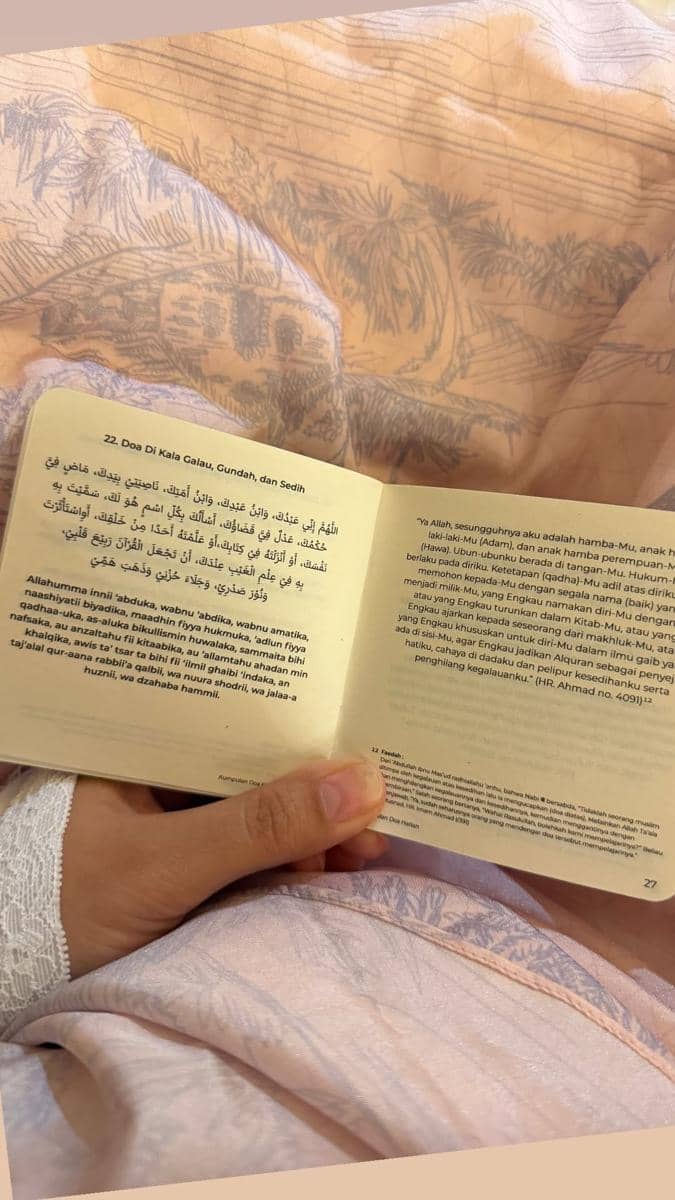 22. Doa Di Kala Galau, Gundah, dan Sedih
اللَّهُمَّ إِنِّي عَبْدُكَ، وَابْنُ عَبْدِكَ، وَابْنُ أَمَتِكَ، نَاصِيَتِيْ بِيَدِكَ، مَاضٍ فِيَّ
حُكْمُكَ، عَدْلٌ فِيَّ قَضَاؤُكَ، أَسْأَلُكَ بِكُلِّ اسْمٍ هُوَ لَكَ، سَمَّيْتَ بِهِ
نَفْسَكَ، أَوْ أَنْزَلْتَهُ فِيْ كِتَابِكَ، أَوْ عَلَّمْتَهُ أَحَدًا مِنْ خَلْقِكَ، أَوِاسْتَأْثَرْتَ
بِهِ فِيْ عِلْمِ الْغَيْبِ عِنْدَكَ، أَنْ تَجْعَلَ الْقُرْآنَ رَبِيْعَ قَلْبِيْ،
وَنُوْرَ صَدْرِيْ، وَجَلَاءَ حُزْنِيْ وَذَهَبَ هَمِّيْ
Allahumma innii 'abduka, wabnu 'abdika, wabnu amatika,
naashiyatii biyadika, maadhin fiyya hukmuka, 'adlun fiyya
qadhaa-uka, as-aluka bikullismin huwalaka, sammaita bihi
nafsaka, au anzaltahu fii kitaabika, au 'allamtahu ahadan min
khalqika, awis ta' tsar ta bihi fii 'ilmil ghaibi 'indaka, an
taj'alal qur-aana rabbii'a qalbii, wa nuura shodrii, wa jalaa-a
huznii, wa dzahaba hammii.
Kumpulan Doa
"Ya Allah, sesungguhnya aku adalah hamba-Mu, anak h
laki-laki-Mu (Adam), dan anak hamba perempuan-M
(Hawa). Ubun-ubunku berada di tangan-Mu. Hukum-
berlaku pada diriku. Ketetapan (qadha)-Mu adil atas diriku
memohon kepada-Mu dengan segala nama (baik) yan
menjadi milik-Mu, yang Engkau namakan diri-Mu dengan
atau yang Engkau turunkan dalam Kitab-Mu, atau yang
Engkau ajarkan kepada seseorang dari makhluk-Mu, ata
yang Engkau khususkan untuk diri-Mu dalam ilmu gaib ya
ada di sisi-Mu, agar Engkau jadikan Alquran sebagai penyej
hatiku, cahaya di dadaku dan pelipur kesedihanku serta
penghilang kegalauanku." (HR. Ahmad no. 4091)¹²
12 Faedah :
Dari 'Abdullah ibnu Mas'ud radhiallahu 'anhu, bahwa Nabi ﷺ bersabda, "Tidaklah seorang muslim
ditimpa oleh kegalauan atau kesedihan lalu ia mengucapkan (doa diatas), melainkan Allah Ta'ala
menghilangkan kegalauannya dan kesedihannya, kemudian menggantinya dengan
Salah seorang bertanya, "Wahai Rasulullah, bolehkah kami mempelajarinya?" Beliau
menjawab, "Ya, sudah seharusnya orang yang mendengar doa tersebut mempelajarinya."
HR. Imam Ahmad 4091)
Doa Harian
27